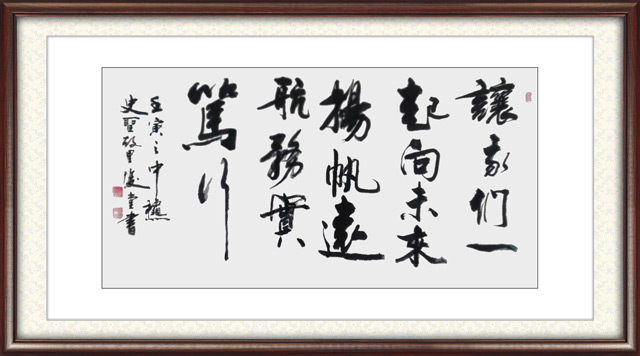 讓我们一
起向未來
揚帆遠
航務實
篤行
壬寅之中穐
史聖故里堂書